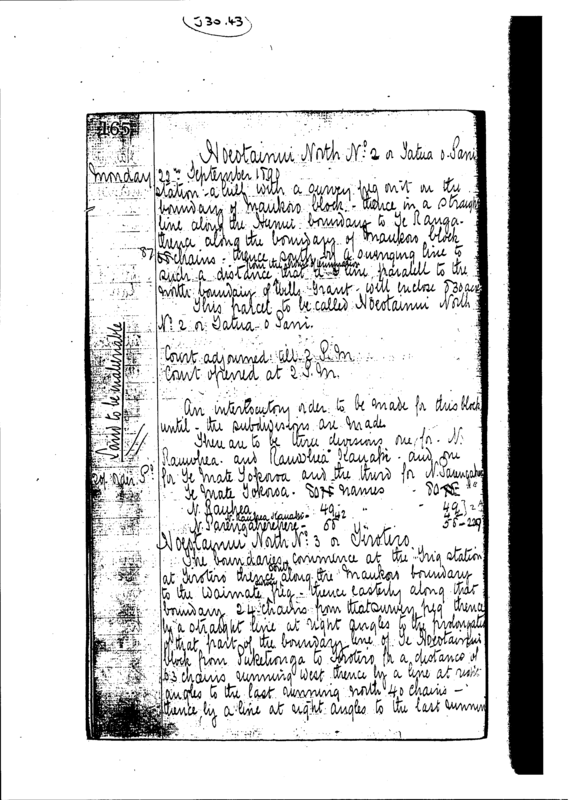 J30.43
165
Hoeotainui North No. 2 or Tatua o Tani
Monday 22nd September 1890
station - a hill with a survey peg on it on the
boundary of Maukoro block - thence in a straight
line along the boundary to Te Ranga-
thence along the boundary of Maukoro block
87 chains - thence south by a running line to
such a distance that a line parallel to the
north boundary of Wells Grant - will enclose 530 acres
This parcel to be called Hoeotainui North
No. 2 or Tatua o Tani.
Court adjourned till 2 P.M.
Court opened at 2 P.M.
Land to be inalienable
An interlocutory order to be made for this block
until - the subdivisions are made
There are to be three divisions one for - N.
Rauwhea - and Rauwhea - and one
for Te Mate Tokoroa and the third for N.
Te Mate Tokoroa - names - 80
N. Rauhea - 49
N. - 229
Hoeotainui North No. 3 or Tirotiro
The boundaries commence at the Trig station
at Tirotiro thence along the Maukoro boundary
to the Waimate peg - thence easterly along that
boundary 24 chains from that survey peg thence
by a straight line at right angles to the prolongation
of that part of the boundary line of Te Hoeotainui
block from Puketionga to Tirotiro for a distance of
63 chains running West thence by a line at right
angles to the last running north 40 chains -
thence by a line at right angles to the last running